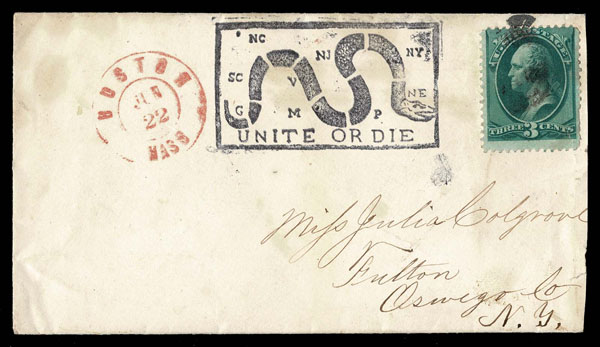 BOSTON
JUN
22
MASS
NC
NJ
NY
SC
V
NE
G
M
P
UNITE OR DIE
U.S. POSTAGE
THREE 3 CENTS
Miss Julia Colgrove
Fulton
Oswego Co
N. Y.